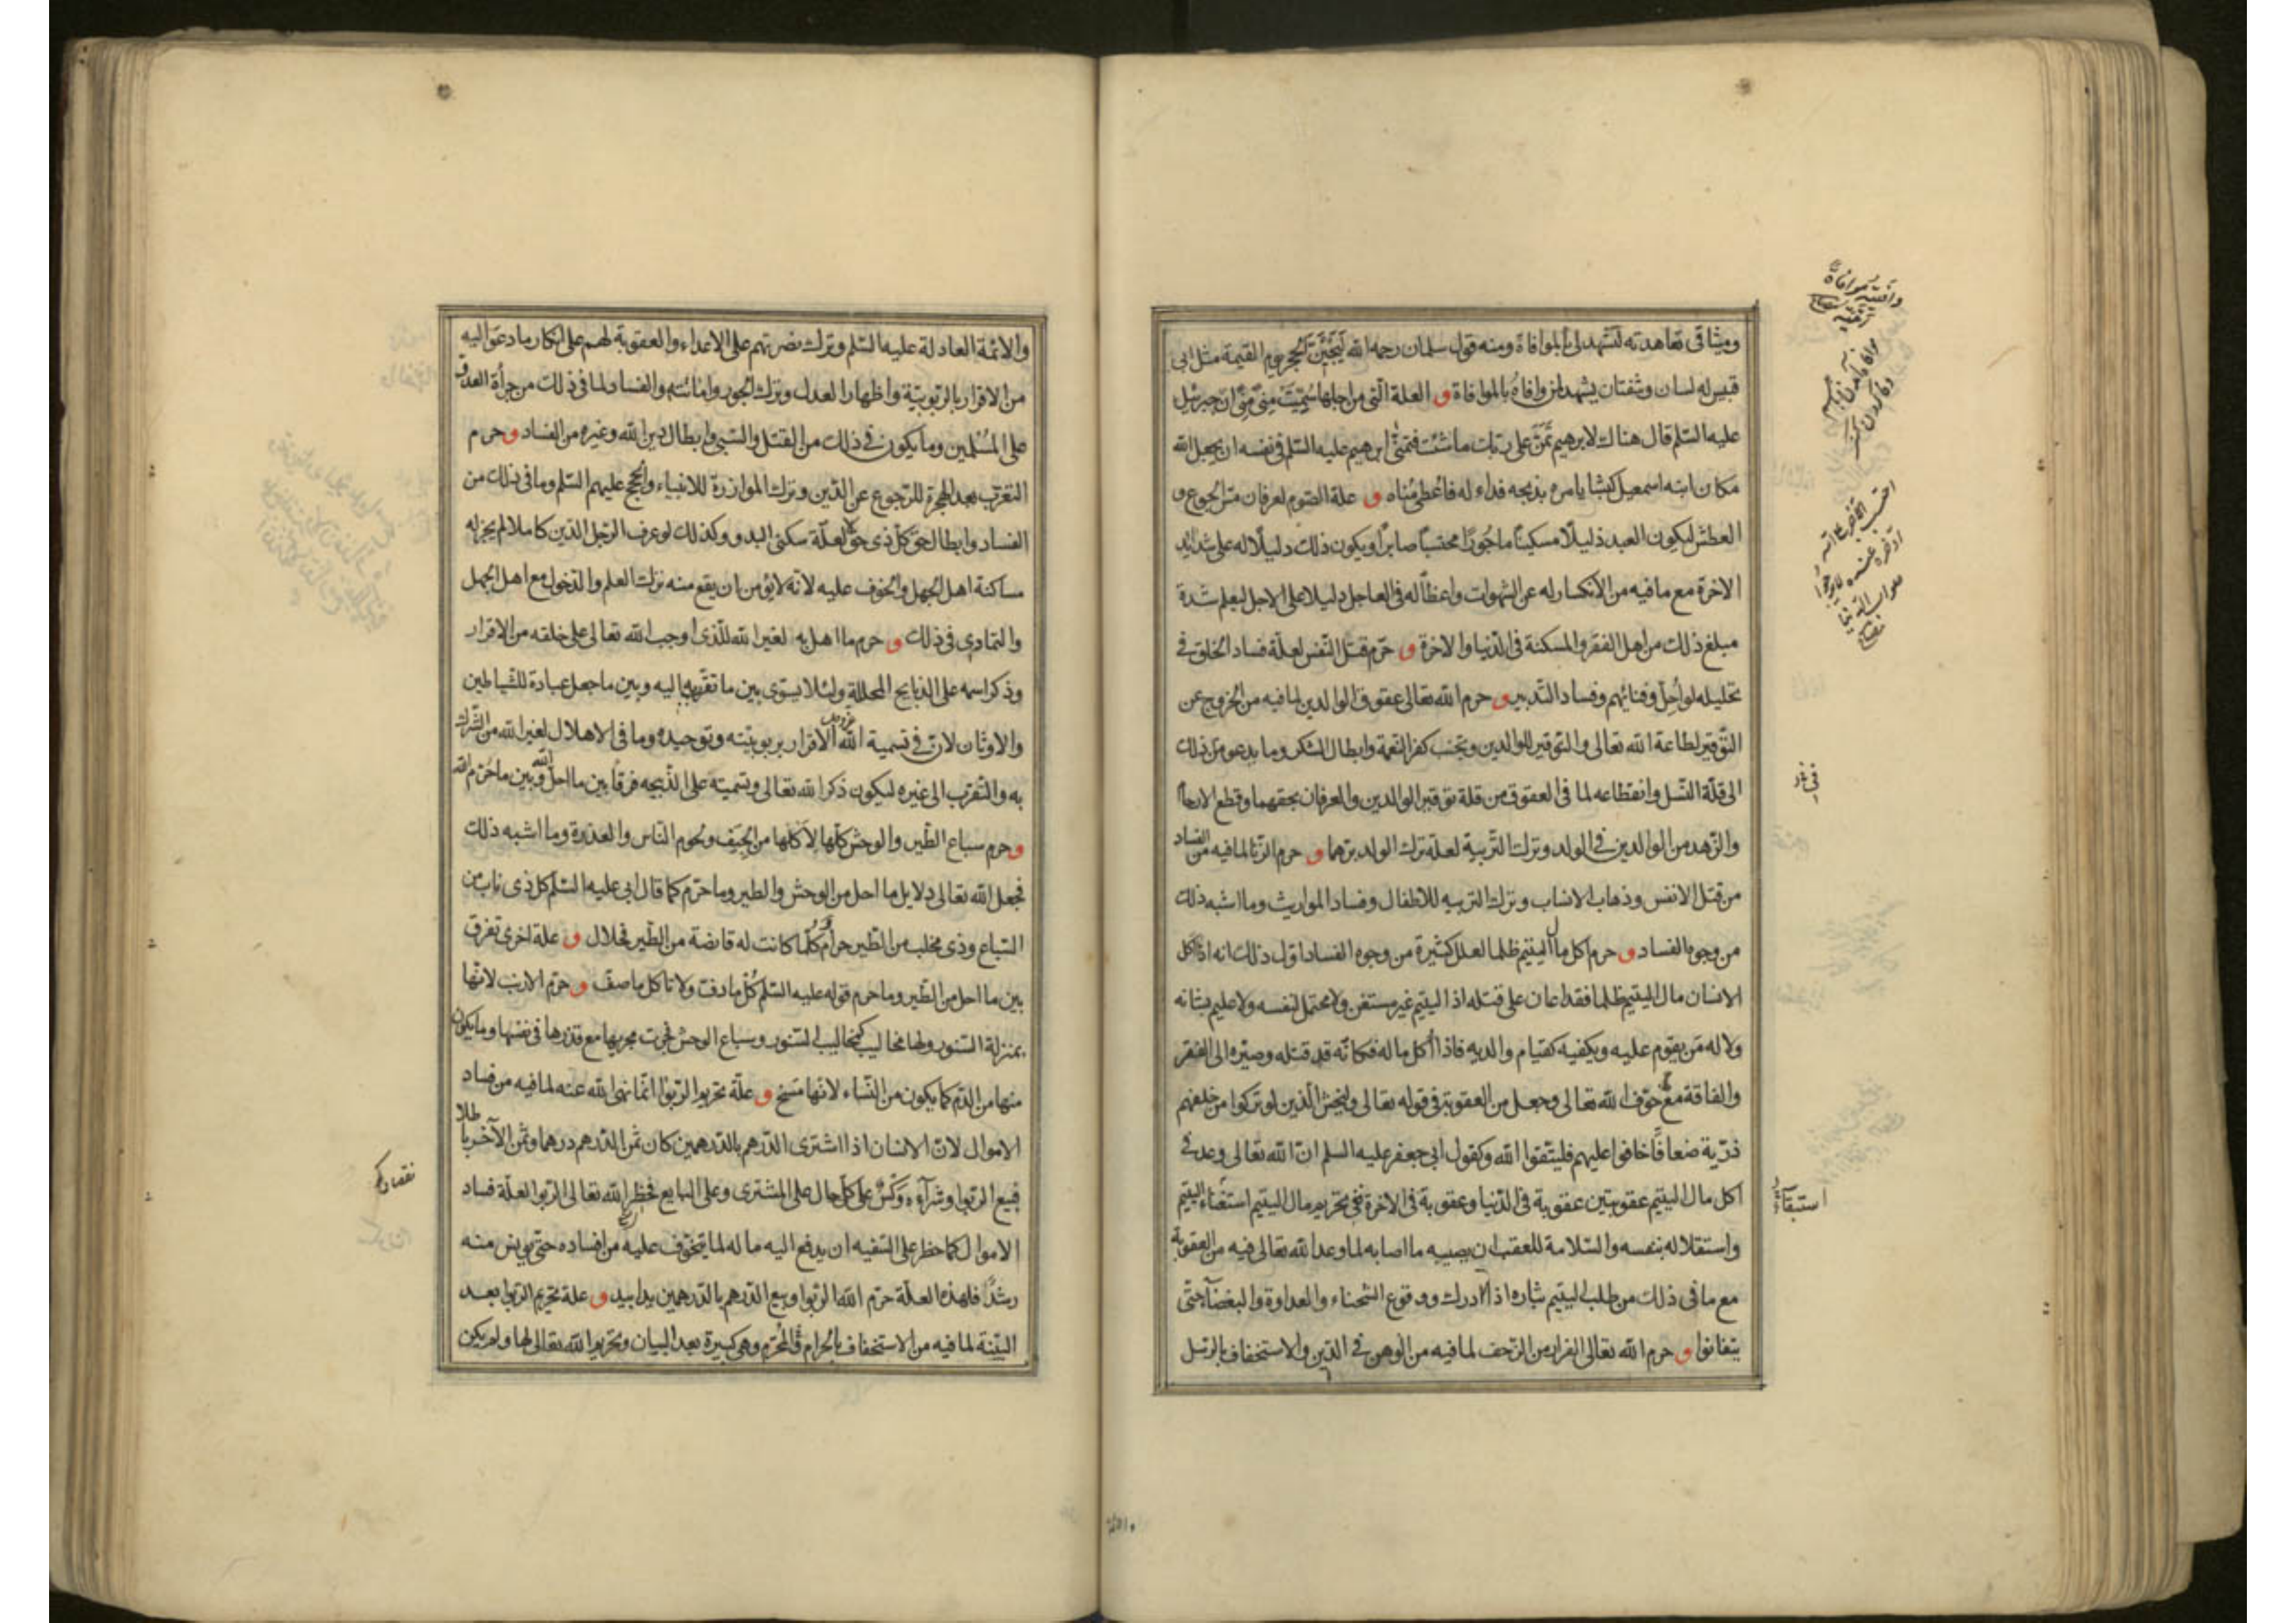 وميثاقى تعاهدته لتشهد لى بالموافاة ومنه قول سلمان رحمه الله ليجيئن الحجر يوم القيمة مثل ابى
قبيس له لسان وشفتان يشهد لمن وافاه بالموافاة و العلة التى من اجلها سميت منى منى ان جبرئيل
عليه السلم قال هناك لابرهيم تمن على ربك ما شئت فتمنى ابرهيم عليه السلم فى نفسه ان يجعل الله
مكان ابنه اسمعيل كبشا يامره بذبحه فداء له فاعطى مناه و علة الصوم لعرفان مس الجوع و
العطش ليكون العبد ذليلا مسكينا ماجورا محتسبا صابرا ويكون ذلك دليلا له على شدائد
الاخرة مع ما فيه من الانكسار له عن الشهوات واعظا له فى العاجل دليلا على الاجل ليعلم شدة
مبلغ ذلك من اهل الفقر والمسكنة فى الدنيا والاخرة و حرم قتل النفس لعلة فساد الخلق فى
تحليله لو احل وفنائهم وفساد التدبير و حرم الله تعالى عقوق الوالدين لما فيه من الخروج عن
التوقير لطاعة الله تعالى والتوقير للوالدين وتجنب كفر النعمة وابطال الشكر وما يدعو من ذلك
الى قلة النسل وانقطاعه لما فى العقوق من قلة توقير الوالدين والعرفان بحقهما وقطع الارحام
والزهد من الوالدين فى الولد وترك التربية لعلة ترك الولد برهما و حرم الزنا لما فيه من الفساد
من قتل الانفس وذهاب الانساب وترك التربيه للاطفال وفساد المواريث وما اشبه ذلك
من وجوه الفساد و حرم اكل مال اليتيم ظلما لعلل كثيرة من وجوه الفساد اول ذلك انه اذا اكل
الانسان مال اليتيم ظلما فقد اعان على قتله اذ اليتيم غير مستغن ولا محتمل لنفسه ولا عليم بشانه
ولا له من يقوم عليه ويكفيه كقيام والديه فاذا اكل ماله فكانه قد قتله وصيره الى الفقر
والفاقة مع خوف الله تعالى وجعل من العقوبة فى قوله تعالى وليخش الذين لو تركوا من خلفهم
ذرية ضعافا خافوا عليهم فليتقوا الله وكقول ابى جعفر عليه السلم ان الله تعالى وعد فى
اكل مال اليتيم عقوبتين عقوبة فى الدنيا وعقوبة فى الاخرة ففى تحريم مال اليتيم استغناء اليتيم
واستقلاله بنفسه والسلامة للعقب ان يصيبه ما اصابه لما وعد الله تعالى فيه من العقوبة
مع ما فى ذلك من طلب اليتيم بثاره اذا ادرك ووقوع الشحناء والعداوة والبغضاء حتى
يتفانوا و حرم الله تعالى الفرار من الزحف لما فيه من الوهن فى الدين والاستخفاف بالرسل
استبقاء
والائمة
والائمة العادلة عليهم السلم وترك نصرتهم على الاعداء والعقوبة لهم على انكار ما دعوا اليه
من الاقرار بالربوبية واظهار العدل وترك الجور واماتته والفساد لما فى ذلك من جرأة العدو
على المسلمين وما يكون فى ذلك من القتل والسبى وابطال دين الله وغيره من الفساد و حرم
التعرب بعد الهجرة للرجوع عن الدين وترك الموازرة للانبياء والحجج عليهم السلم وما فى ذلك من
الفساد وابطال حق كل ذى حق لا لعلة سكنى البدو وكذلك لو عرف الرجل الدين كاملا لم يجز له
مساكنة اهل الجهل والخوف عليه لانه لا يؤمن ان يقع منه ترك العلم والدخول مع اهل الجهل
والتمادى فى ذلك و حرم ما اهل به لغير الله للذى اوجب الله تعالى على خلقه من الاقرار
وذكر اسمه على الذبايح المحللة ولئلا يستوى بين ما تقرب به اليه وبين ما جعل عبادة للشياطين
والاوثان لان فى تسمية الله عز وجل الاقرار بربوبيته وتوحيده وما فى الاهلال لغير الله من الشرك
به والتقرب الى غيره ليكون ذكر الله تعالى وتسميته على الذبيحه فرقا بين ما احل الله وبين ما حرم الله
و حرم سباع الطير والوحش كلها لاكلها من الجيف ولحوم الناس والعذرة وما اشبه ذلك
فجعل الله تعالى دلايل ما احل من الوحش والطير وما حرم كما قال ابى عليه السلم كل ذى ناب من
السباع وذى مخلب من الطير حرام وكلما كانت له قانصة من الطير فحلال و علة اخرى تفرق
بين ما احل من الطير وما حرم قوله عليه السلم كل ما دف ولا تاكل ما صف و حرم الارنب لانها
بمنزلة السنور ولها مخاليب كمخاليب السنور وسباع الوحش فجرت مجريها مع قذرها فى نفسها وما يكون
منها من الدم كما يكون من النساء لانها مسخ و علة تحريم الربوا انما نهى الله عنه لما فيه من فساد
الاموال لان الانسان اذا اشترى الدرهم بالدرهمين كان ثمن الدرهم درهما وثمن الآخر باطلا
فبيع الربوا وشرآءه وكس على كل حال على المشترى وعلى البايع فحظر الله تعالى الربوا لعلة فساد
الاموال كما حظر على السفيه ان يدفع اليه ماله لما يتخوف عليه من افساده حتى يونس منه
رشدا فلهذه العلة حرم الله الربوا وبيع الدرهم بالدرهمين يدا بيد و علة تحريم الربوا بعد
البينة لما فيه من الاستخفاف بالحرام المحرم وهى كبيرة بعد البيان وتحريم الله تعالى لها ولم يكن